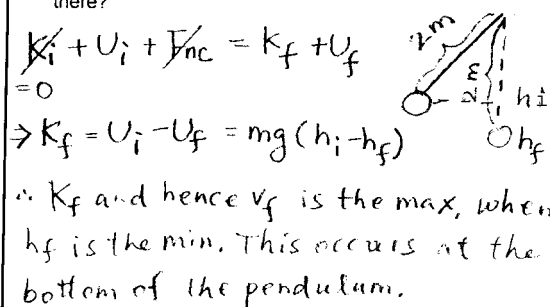 there?
K̸i + Ui + W̸nc = Kf + Uf
=0
⇒ Kf = Ui - Uf = mg(hi-hf)
2m
hi
hf
∴ Kf and hence vf is the max, when
hf is the min. This occurs at the
bottom of the pendulum.